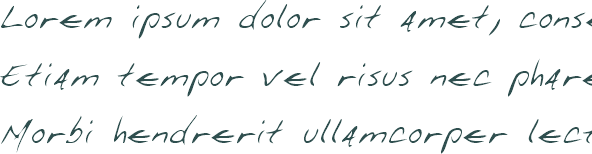 Lorem ipsum dolor sit amet, conse
Etiam tempor vel risus nec phare
Morbi hendrerit ullamcorper lect